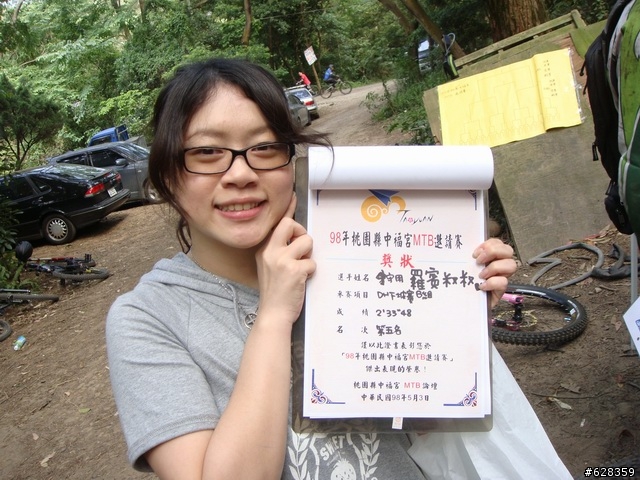 TAOYUAN
98年桃園縣中福宮MTB邀請賽
獎狀
選手姓名 羅賓叔叔
參賽項目
成 績 2'33"48
名 次 第五名
謹以此證書表彰您於
「98年桃園縣中福宮MTB邀請賽」
傑出表現的榮譽！
桃園縣中福宮 MTB 論壇
中華民國98年5月3日
#628359